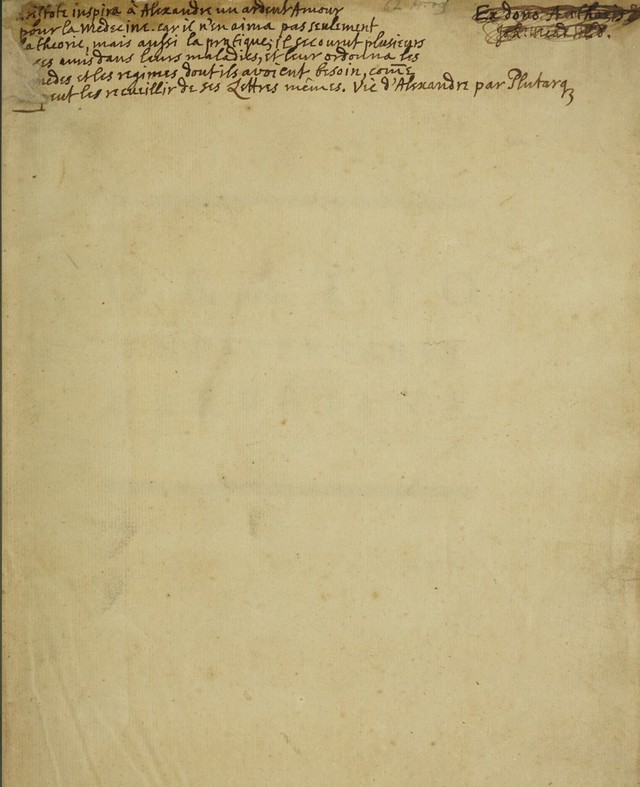 ristote inspira à Alexandre un ardent Amour
pour la Medecine. car il n'en aima pas seulement
la theorie, mais aussi la pratique; il secourut plusieurs
es amis dans leurs maladies, et leur ordonna les
medes et les regimes dont ils avoient besoin, com̅e
eut les recueillir de ses Lettres mêmes. Vie d'Alexandre par Plutarq
Ex dono Authoris